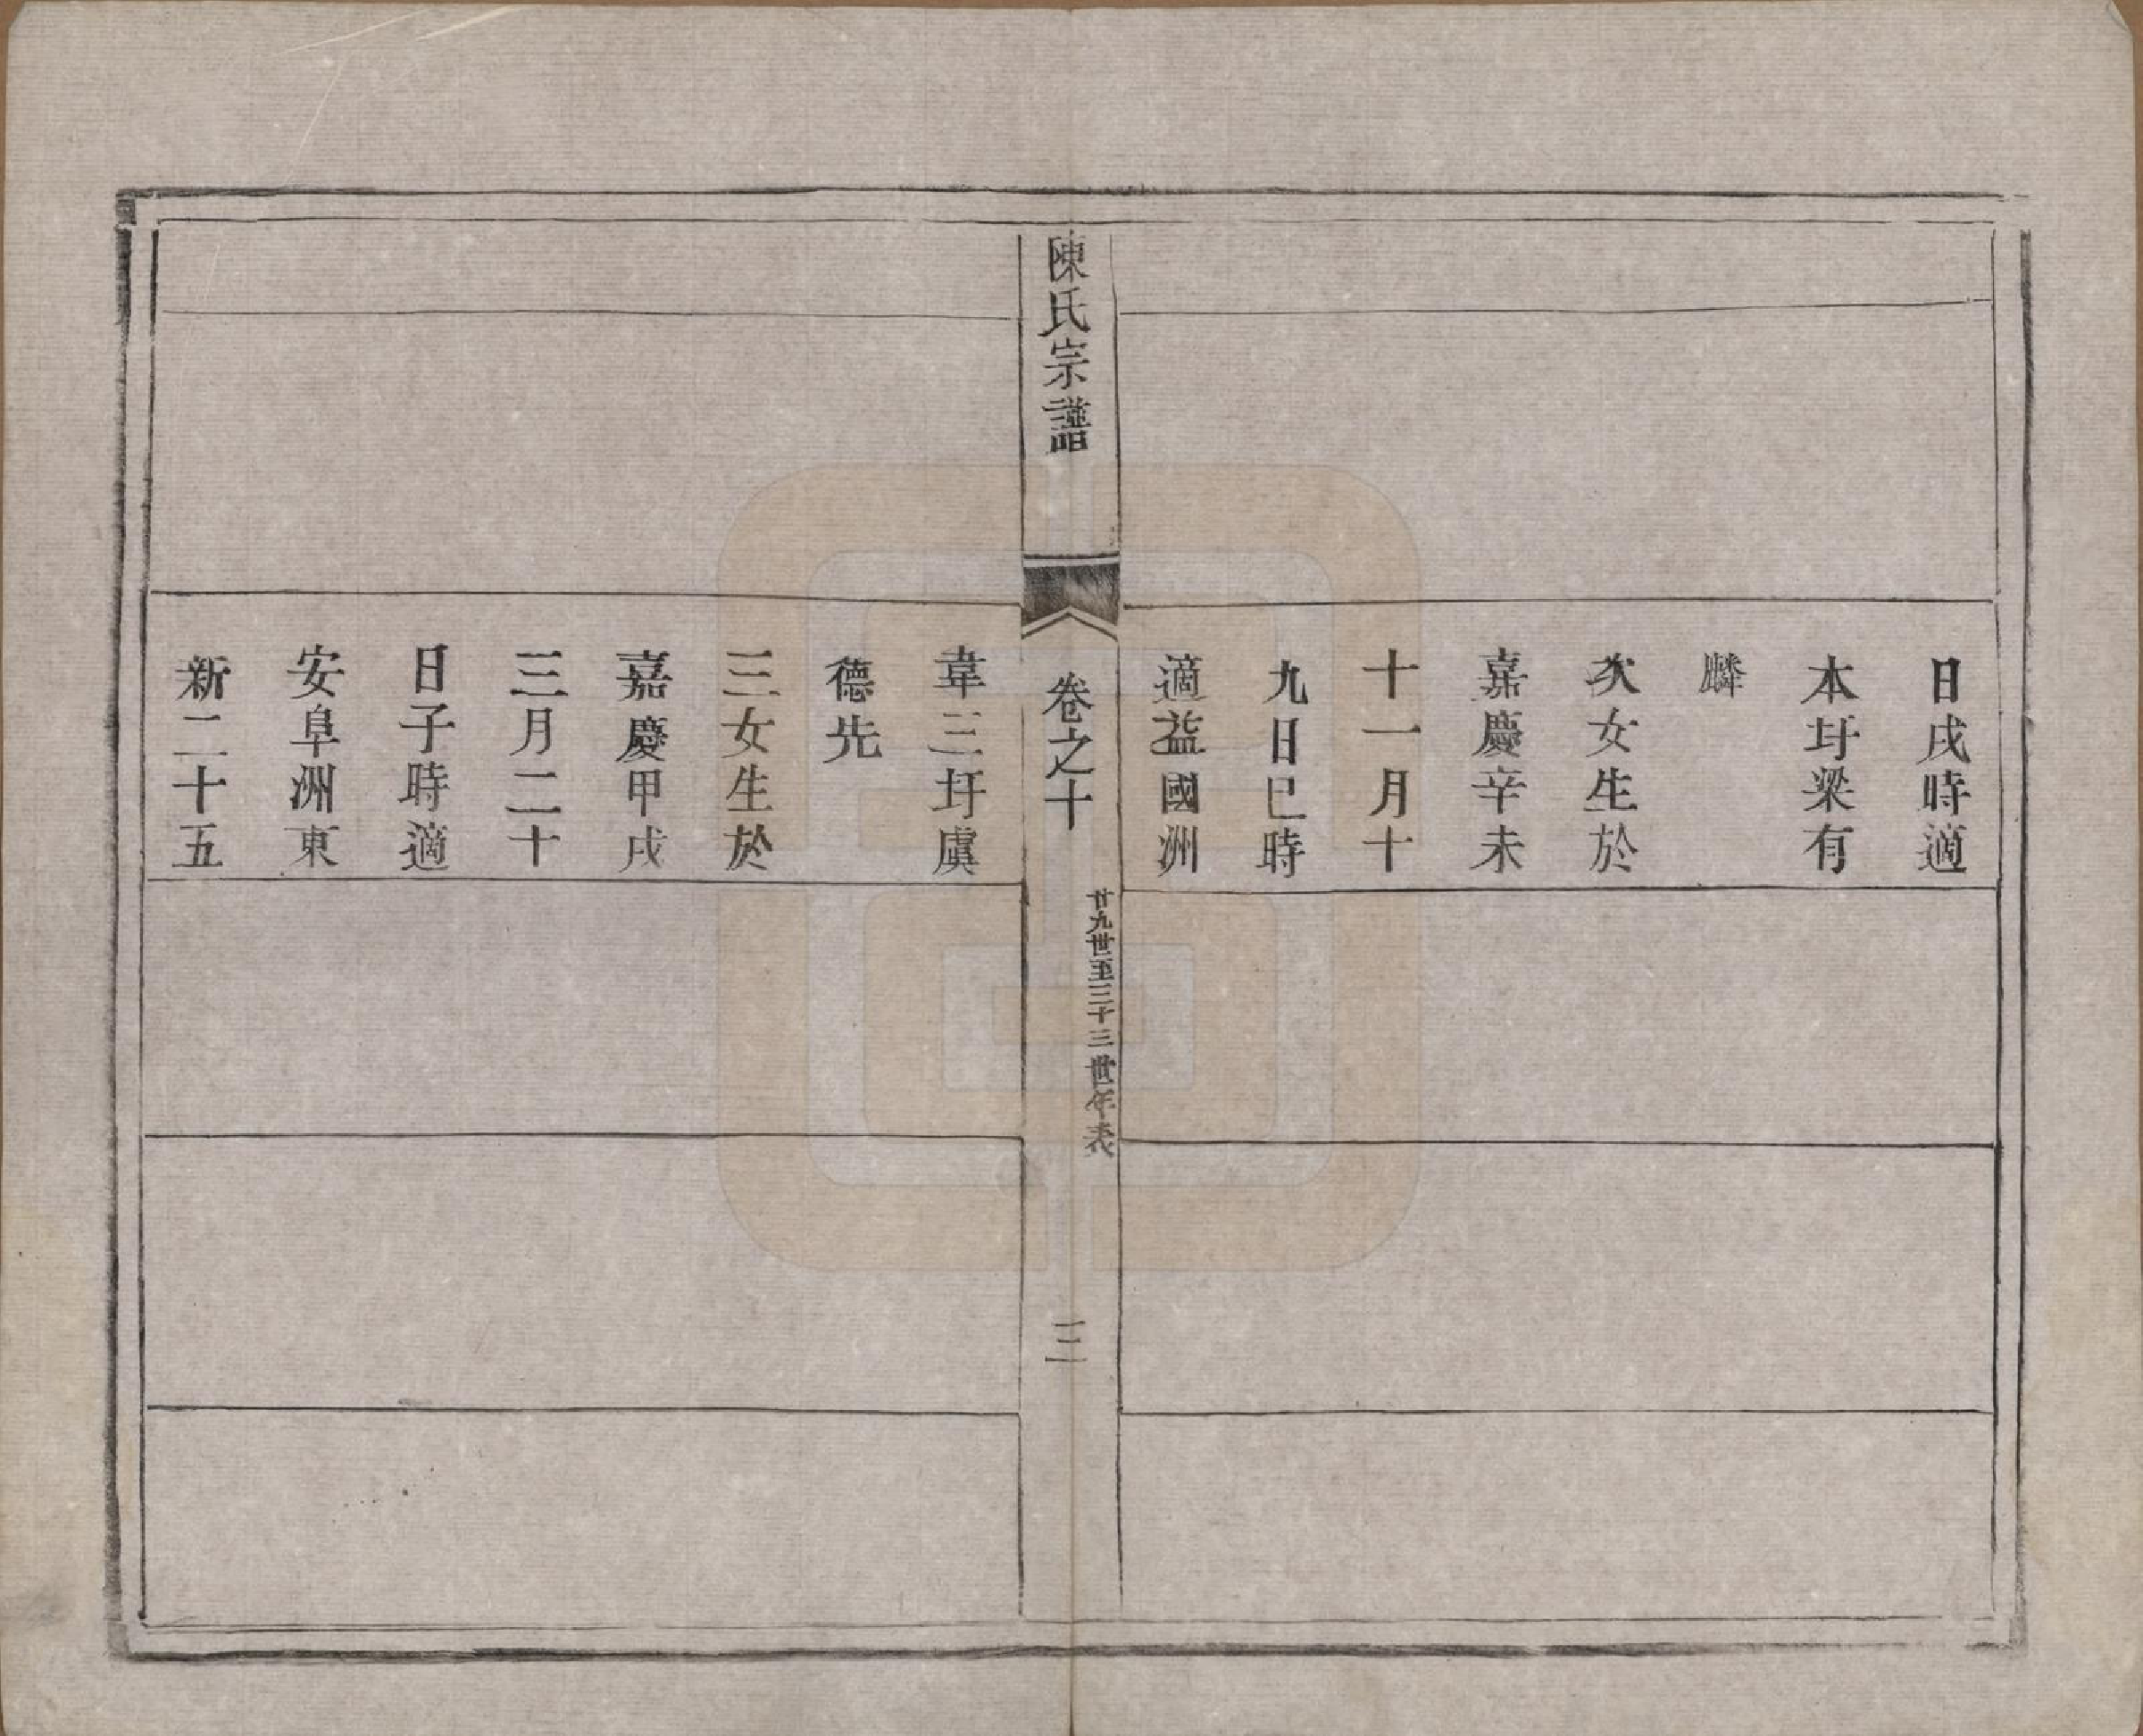 日戌時適
本圩梁有
麟
次女生於
嘉慶辛未
十一月十
九日巳時
適益國洲
陳氏宗譜
卷之十
廿九世至三十三世年表
三
韋三圩虞
德先
三女生於
嘉慶甲戌
三月二十
日子時適
安阜洲東
新二十五